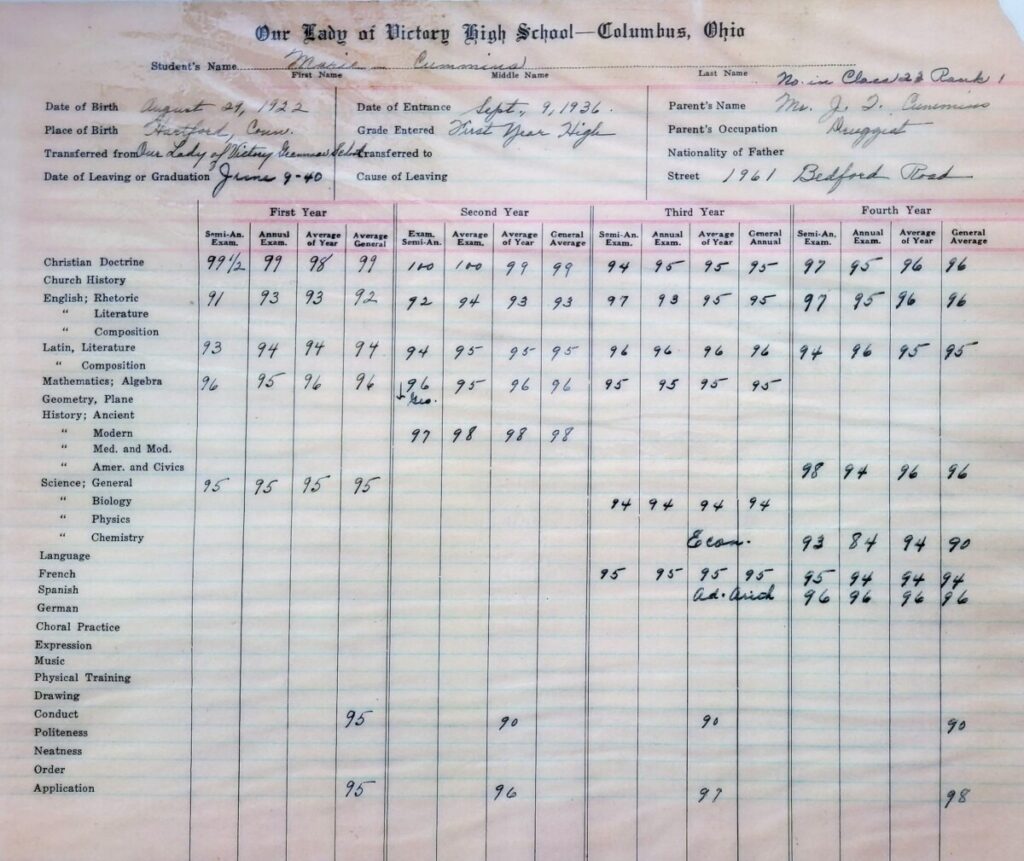 Our Lady of Victory High School—Columbus, Ohio
Student's Name Marie – Cummins
First Name Middle Name Last Name No. in Class 23 Rank 1
Date of Birth August 29, 1922 Date of Entrance Sept. 9, 1936 Parent's Name Mr. J. T. Cummins
Place of Birth Hartford, Conn. Grade Entered First Year High Parent's Occupation Druggist
Transferred from Our Lady of Victory Grammar School Transferred to Nationality of Father
Date of Leaving or Graduation June 9-40 Cause of Leaving Street 1961 Bedford Road
First Year Second Year Third Year Fourth Year
Semi-An. Exam. Annual Exam. Average of Year Average General Exam. Semi-An. Average Exam. Average of Year General Average Semi-An. Exam. Annual Exam. Average of Year General Annual Semi-An. Exam. Annual Exam. Average of Year General Average
Christian Doctrine 99 1/2 99 98 99 100 100 99 99 94 95 95 95 97 95 96 96
Church History
English; Rhetoric 91 93 93 92 92 94 93 93 97 93 95 95 97 95 96 96
" Literature
" Composition
Latin, Literature 93 94 94 94 94 95 95 95 96 96 96 96 94 96 95 95
" Composition
Mathematics; Algebra 96 95 96 96 96 95 96 96 95 95 95 95
Geometry, Plane Geo.
History; Ancient
" Modern 97 98 98 98
" Med. and Mod.
" Amer. and Civics 98 94 96 96
Science; General 95 95 95 95
" Biology 94 94 94 94
" Physics
" Chemistry Econ. 93 84 94 90
Language
French 95 95 95 95 95 94 94 94
Spanish Ad. Arith 96 96 96 96
German
Choral Practice
Expression
Music
Physical Training
Drawing
Conduct 95 90 90 90
Politeness
Neatness
Order
Application 95 96 97 98